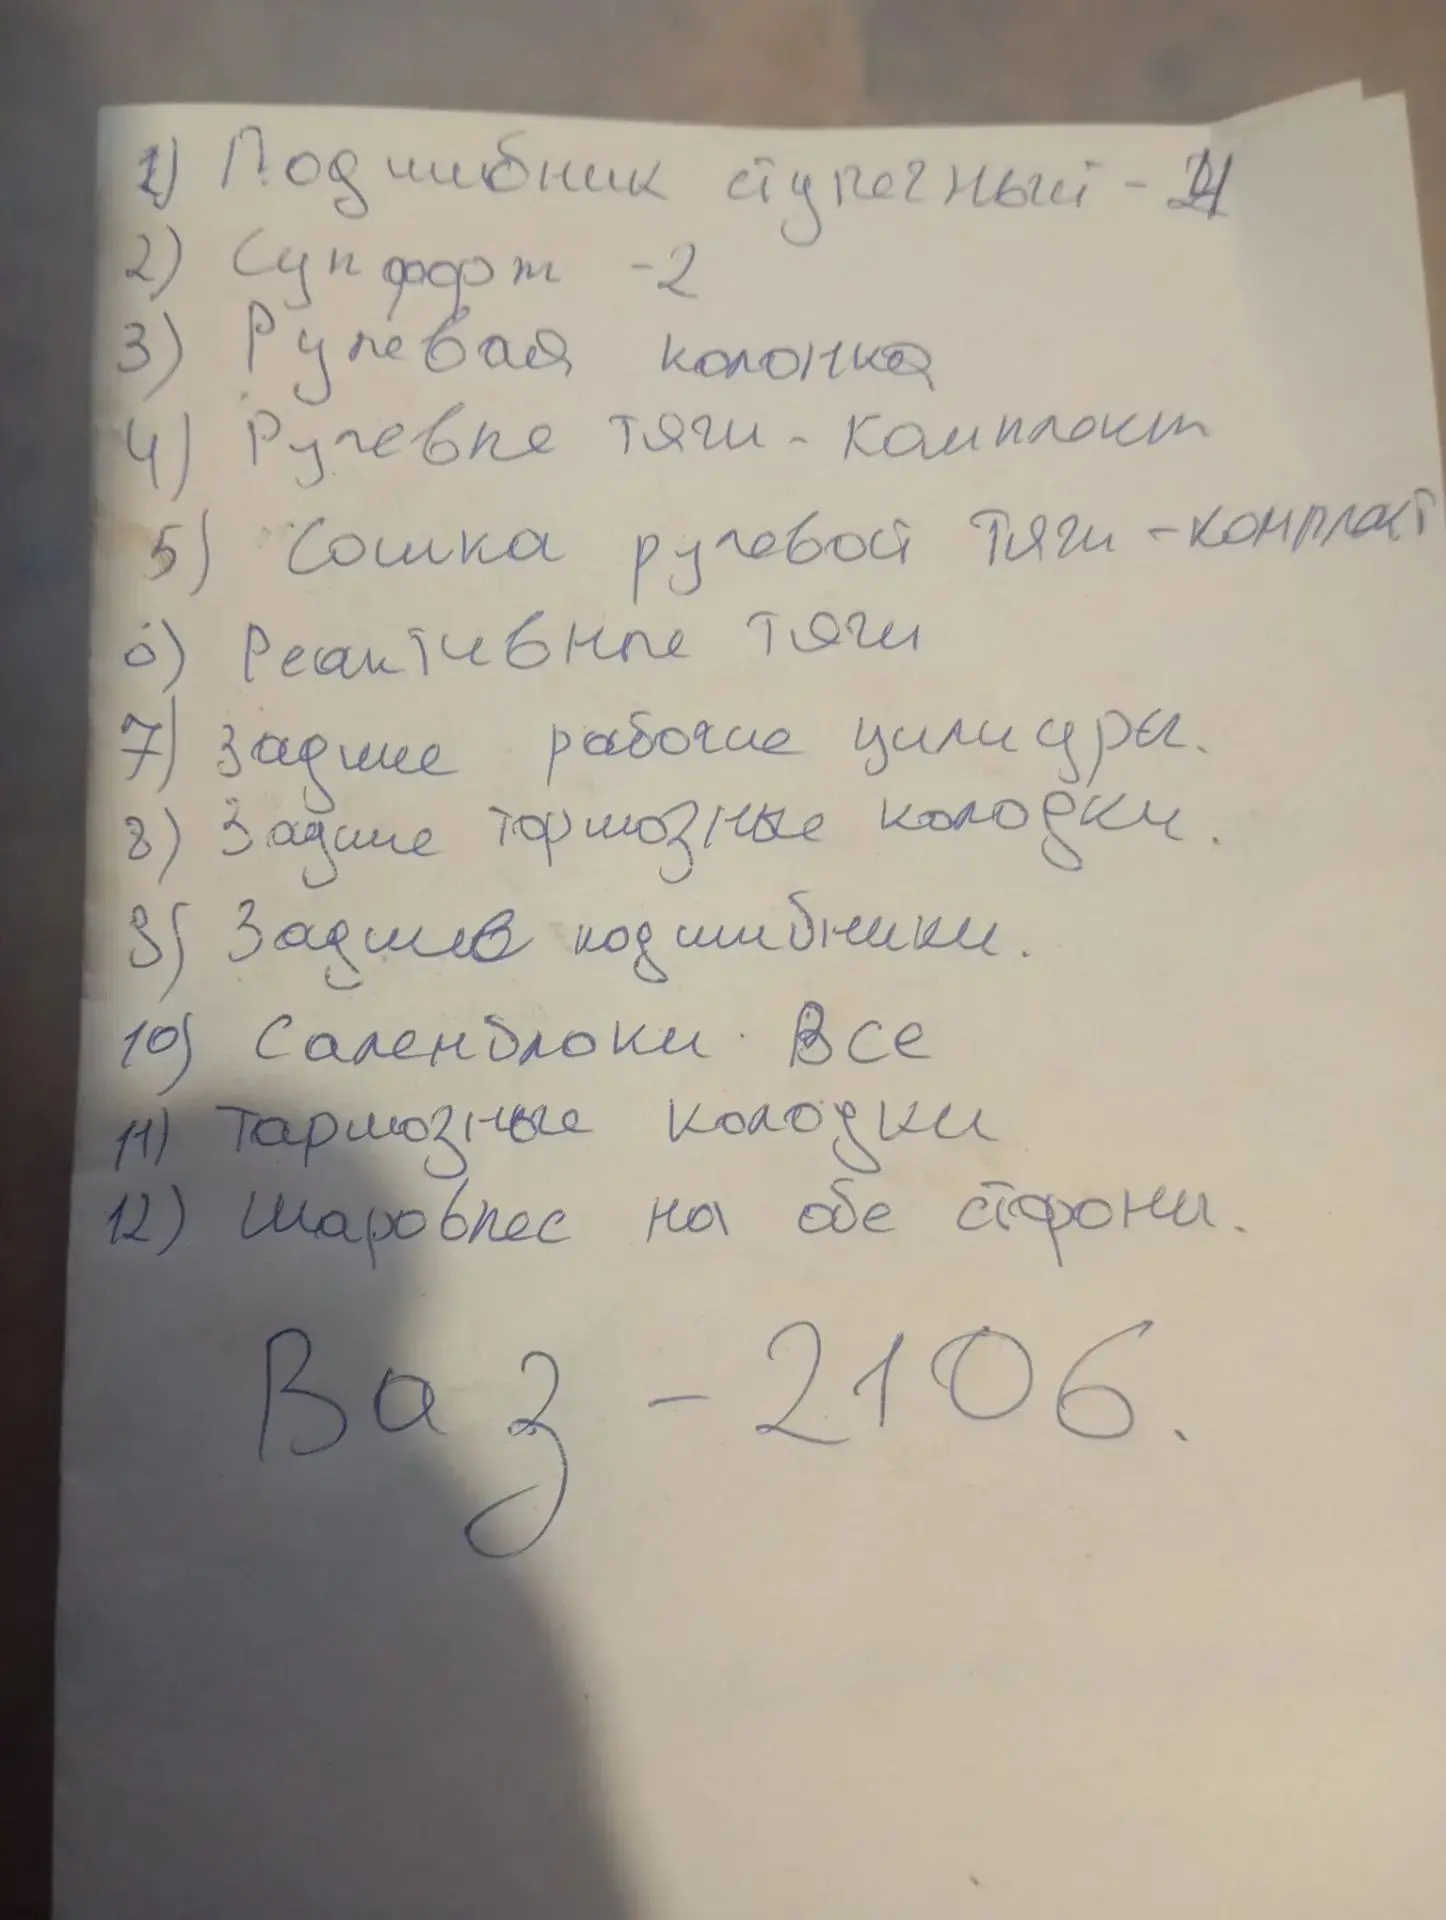 1) Подшибник ступечный - 4
2) Суппорт - 2
3) Рулевая колонка
4) Рулевые тяги - Комплект
5) Сошка рулевой тяги - комплект
6) Реактивные тяги
7) Задние рабочие цилидры.
8) Задние тормозные колодки.
9) Задние подшибники.
10) Саленблоки. Все
11) Тармозные колодки
12) Шаровые на обе стороны.
Ваз - 2106.